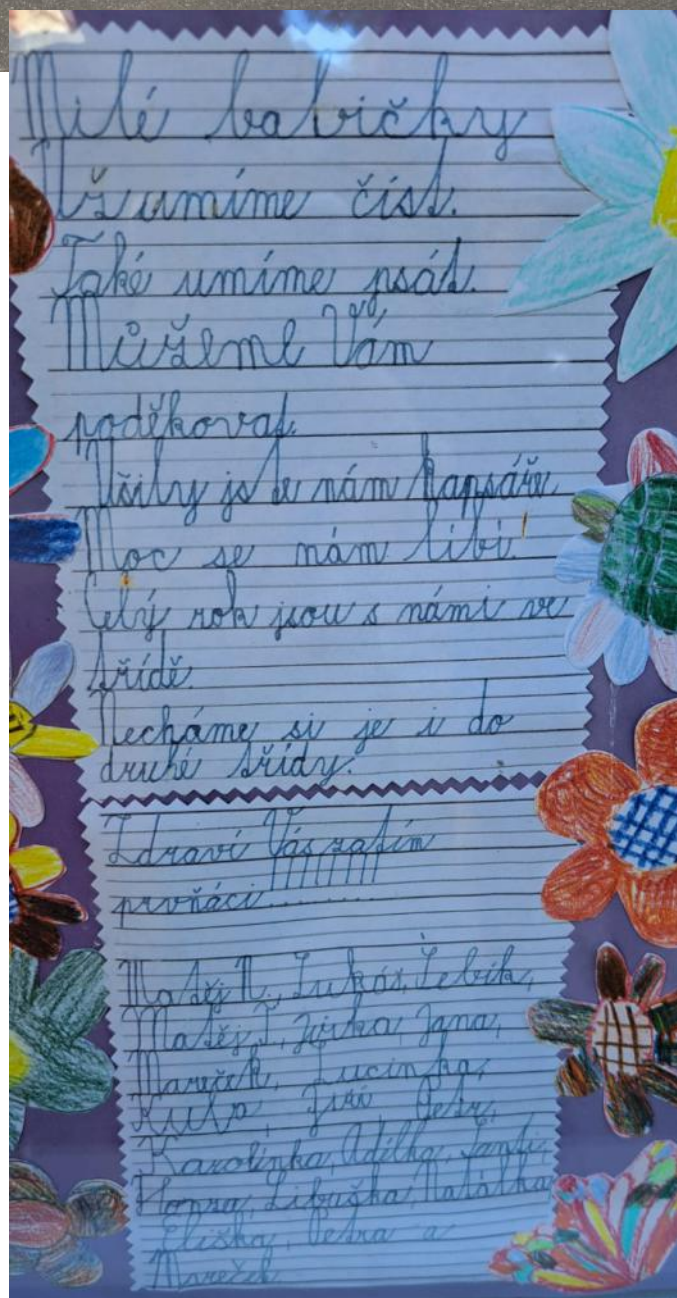 Milé babičky
Už umíme číst.
Také umíme psát.
Můžeme Vám
poděkovat.
Ušily jste nám kapsáře.
Moc se nám líbí!
Celý rok jsou s námi ve
třídě.
Necháme si je i do
druhé třídy.
Zdraví Vás zatím
prvňáci!!!!!!!!!
Matěj N., Lukáš,
Matěj J., Jirka, Jana,
Mareček, Lucinka,
Jiří, Petr,
Karolínka, Adélka,
Honza, Libuška, Natálka
Eliška, Petra a
Mareček